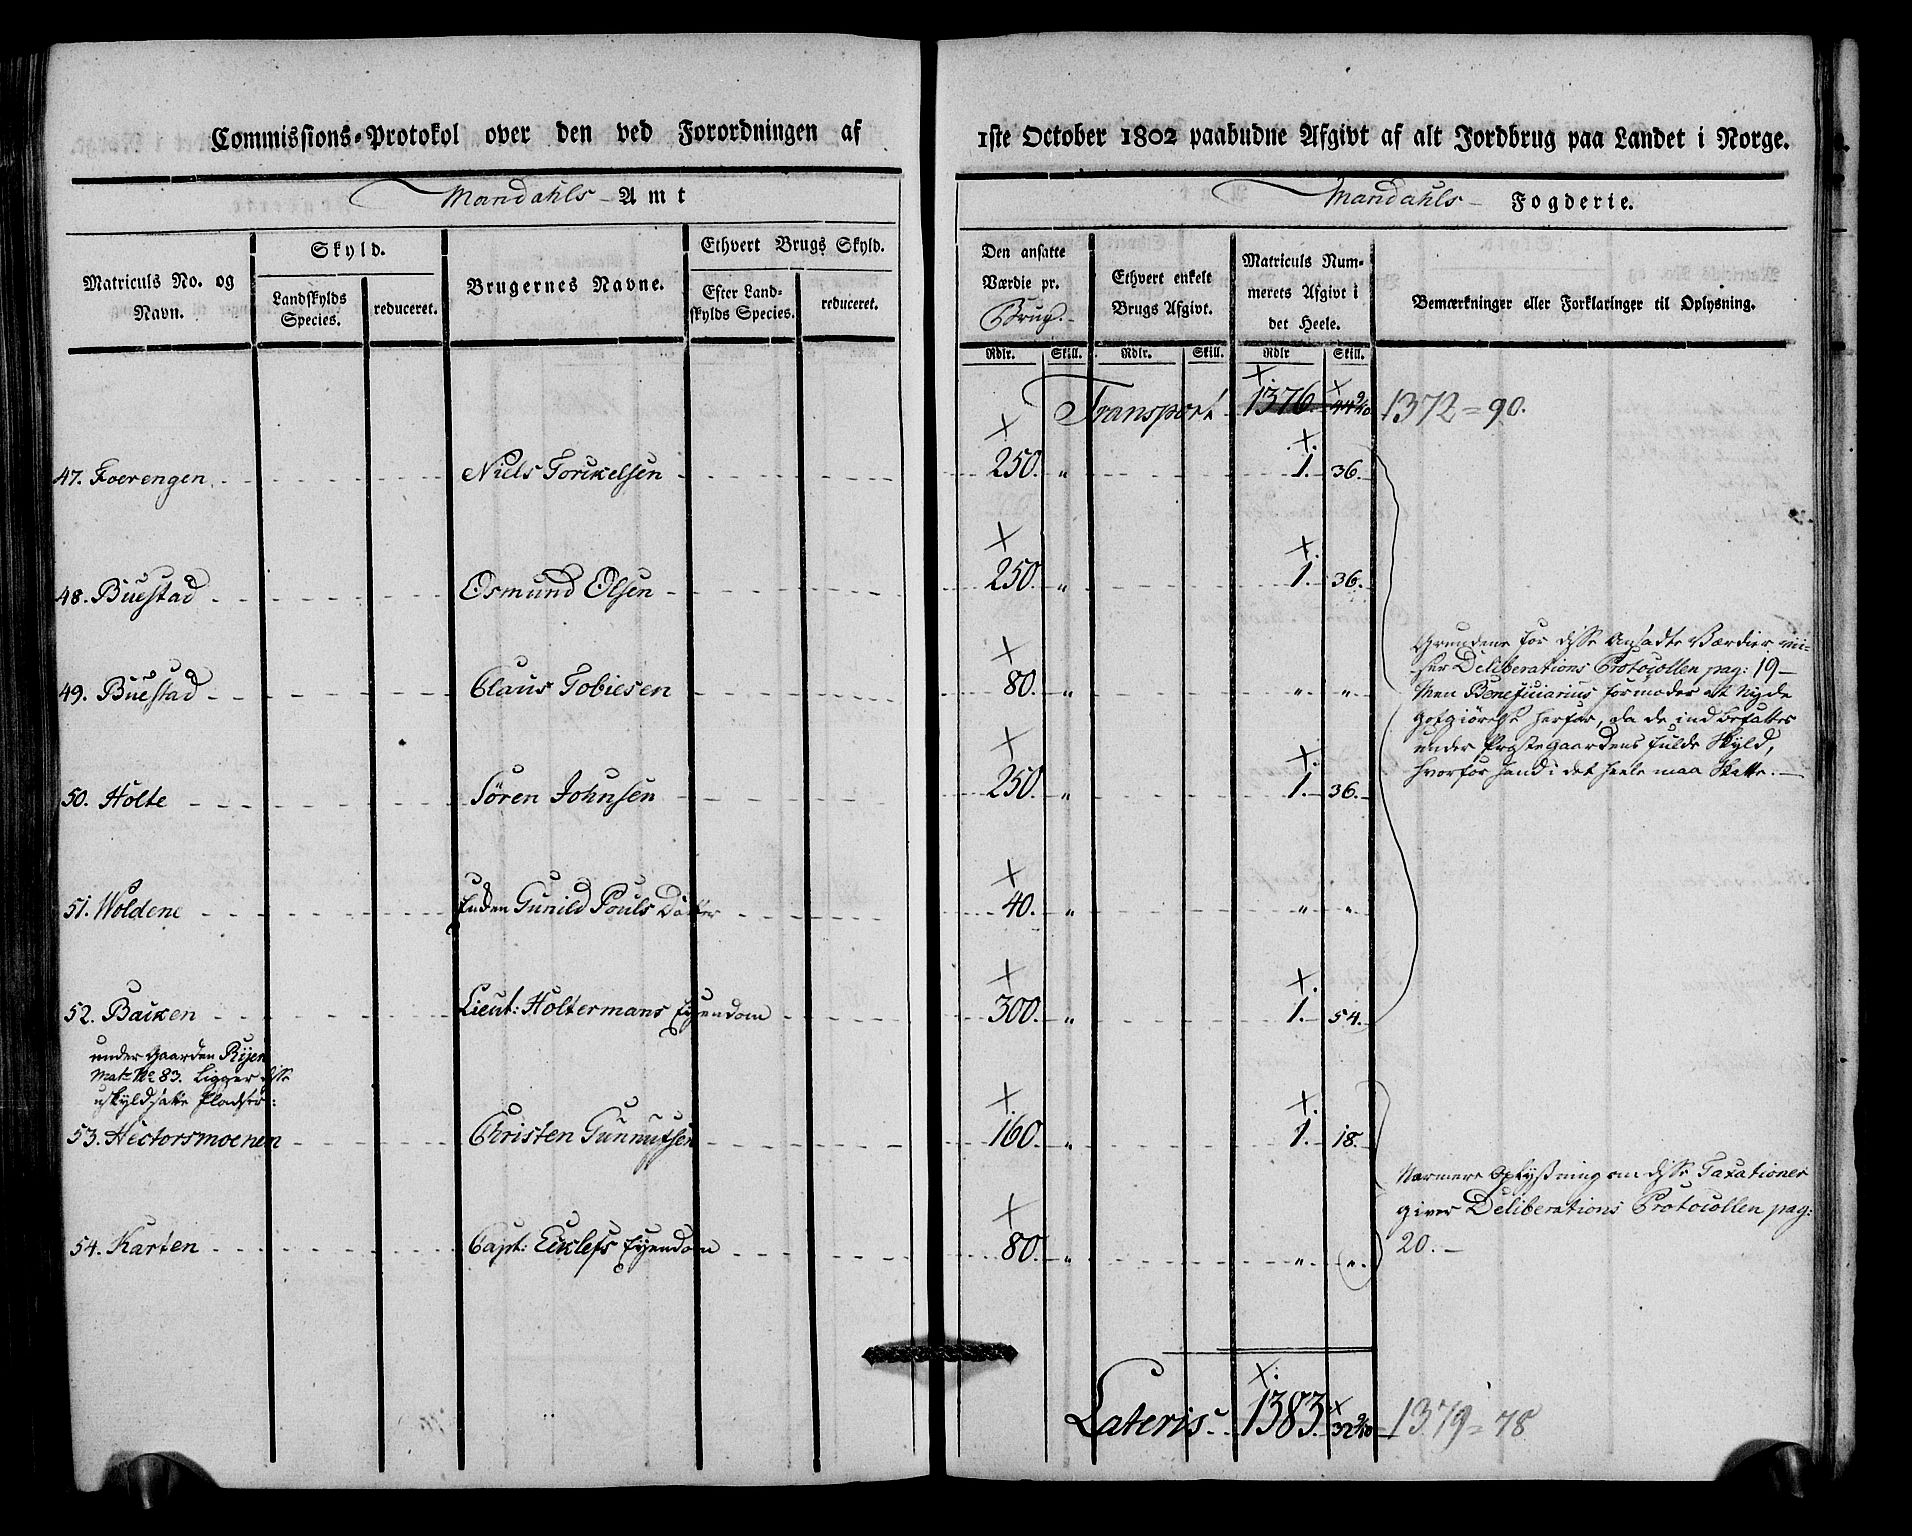 Commissions-Protokol over den ved Forordningen af 1ste October 1802 paabudne Afgivt af alt Jordbrug paa Landet i Norge.
Mandahls Amt
Mandahls Fogderie.
Matriculs No. og Navn.
Skyld.
Landskylds Species.
reduceret.
Brugernes Navne.
Ethvert Brugs Skyld.
Efter Landskylds Species.
reduceret.
Den ansatte Værdie pr. Brug.
Ethvert enkelt Brugs Afgivt.
Matriculs Nummerets Afgivt i det Heele.
Bemærkninger eller Forklaringer til Oplysning.
Rdlr. Skill. Rdlr. Skill. Rdlr Skill.
Transport 1376. 44 9/10 1372 = 90.
47. Foerengen Niels Torckelsen 250. „ 1. 36.
48. Buestad Osmund Olsen 250. „ 1. 36.
49. Buestad Claus Tobiesen 80. „ „ „
50. Holte Sören Johnsen 250. „ 1. 36.
51. Woldene Enken Gunild Pouls Datter 40. „ „ „
52. Bakken Lieut: Holtermans Eyendom 300. „ 1. 54.
under Gaarden Ryen
Mat: No 83. Ligger disse
uskyldsatte Pladser:
53. Hectorsmoenen Christen Gunnufsen 160. „ 1. 18.
54. Karten Capt: Ecklefs Eyendom 80. „ „ „
Grundene for disse Ansadte Værdier vii-
ser Deliberations Protocollen pag: 19 —
Men Beneficiarius formoder at Nyde
Godtgiörelse herfor, da de indbefattes
under Præstegaardens fulde Skyld,
hvorfor hand i det heele maa Skatte. —
Nærmere Oplysning om disse Taxationer
giver Deliberations Protocollen pag:
20. —
Lateris 1383. 32 9/10 1379 = 78